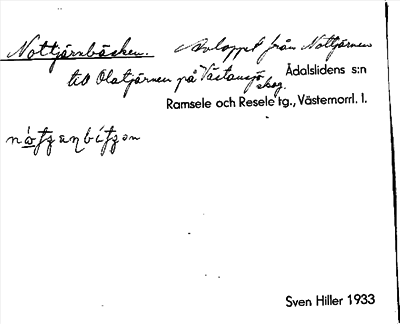 Nottjärnbäcken. Avloppet från Nottjärnen
till Olatjärnen på Västansjö
skog.
Ådalslidens s:n
Ramsele och Resele tg., Västernorrl. l.
Sven Hiller 1933